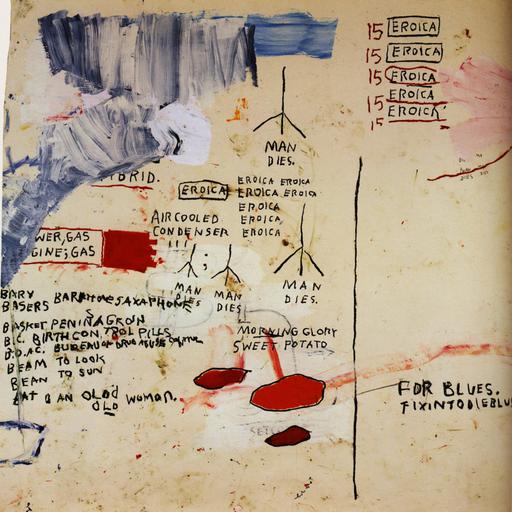 15 EROICA
15 EROICA
15 EROICA
EROICA
15 EROICA
15
MAN
DIES.
BRID.
EROICA
EROICA EROICA
EROICA EROICA
EROICA
EROICA
EROICA
AIRCOOLED
CONDENSER
WER,GAS
GINE;GAS
;
MAN
DIES
MAN
DIES
MAN
DIES.
BARY
BASERS BARITONE SAXAPHONE
BASKET PENIN AGROIN
B.C. BIRTH CON. TROL PILLS
B.D.AC. BUREAU OF DRUG ABUSE
BEAM TO LOOK
BEAN TO SUN
BAT AN OLD WOMAN.
OLD
MORNING GLORY
SWEET POTATO
FOR BLUES.
FIXINTODIEBLUES